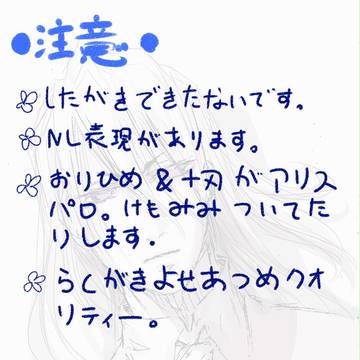 ●注意●
したがきできたないです。
NL表現があります。
おりひめ&十刃がアリス
パロ。けもみみついてた
りします。
らくがきよせあつめクオ
リティー。